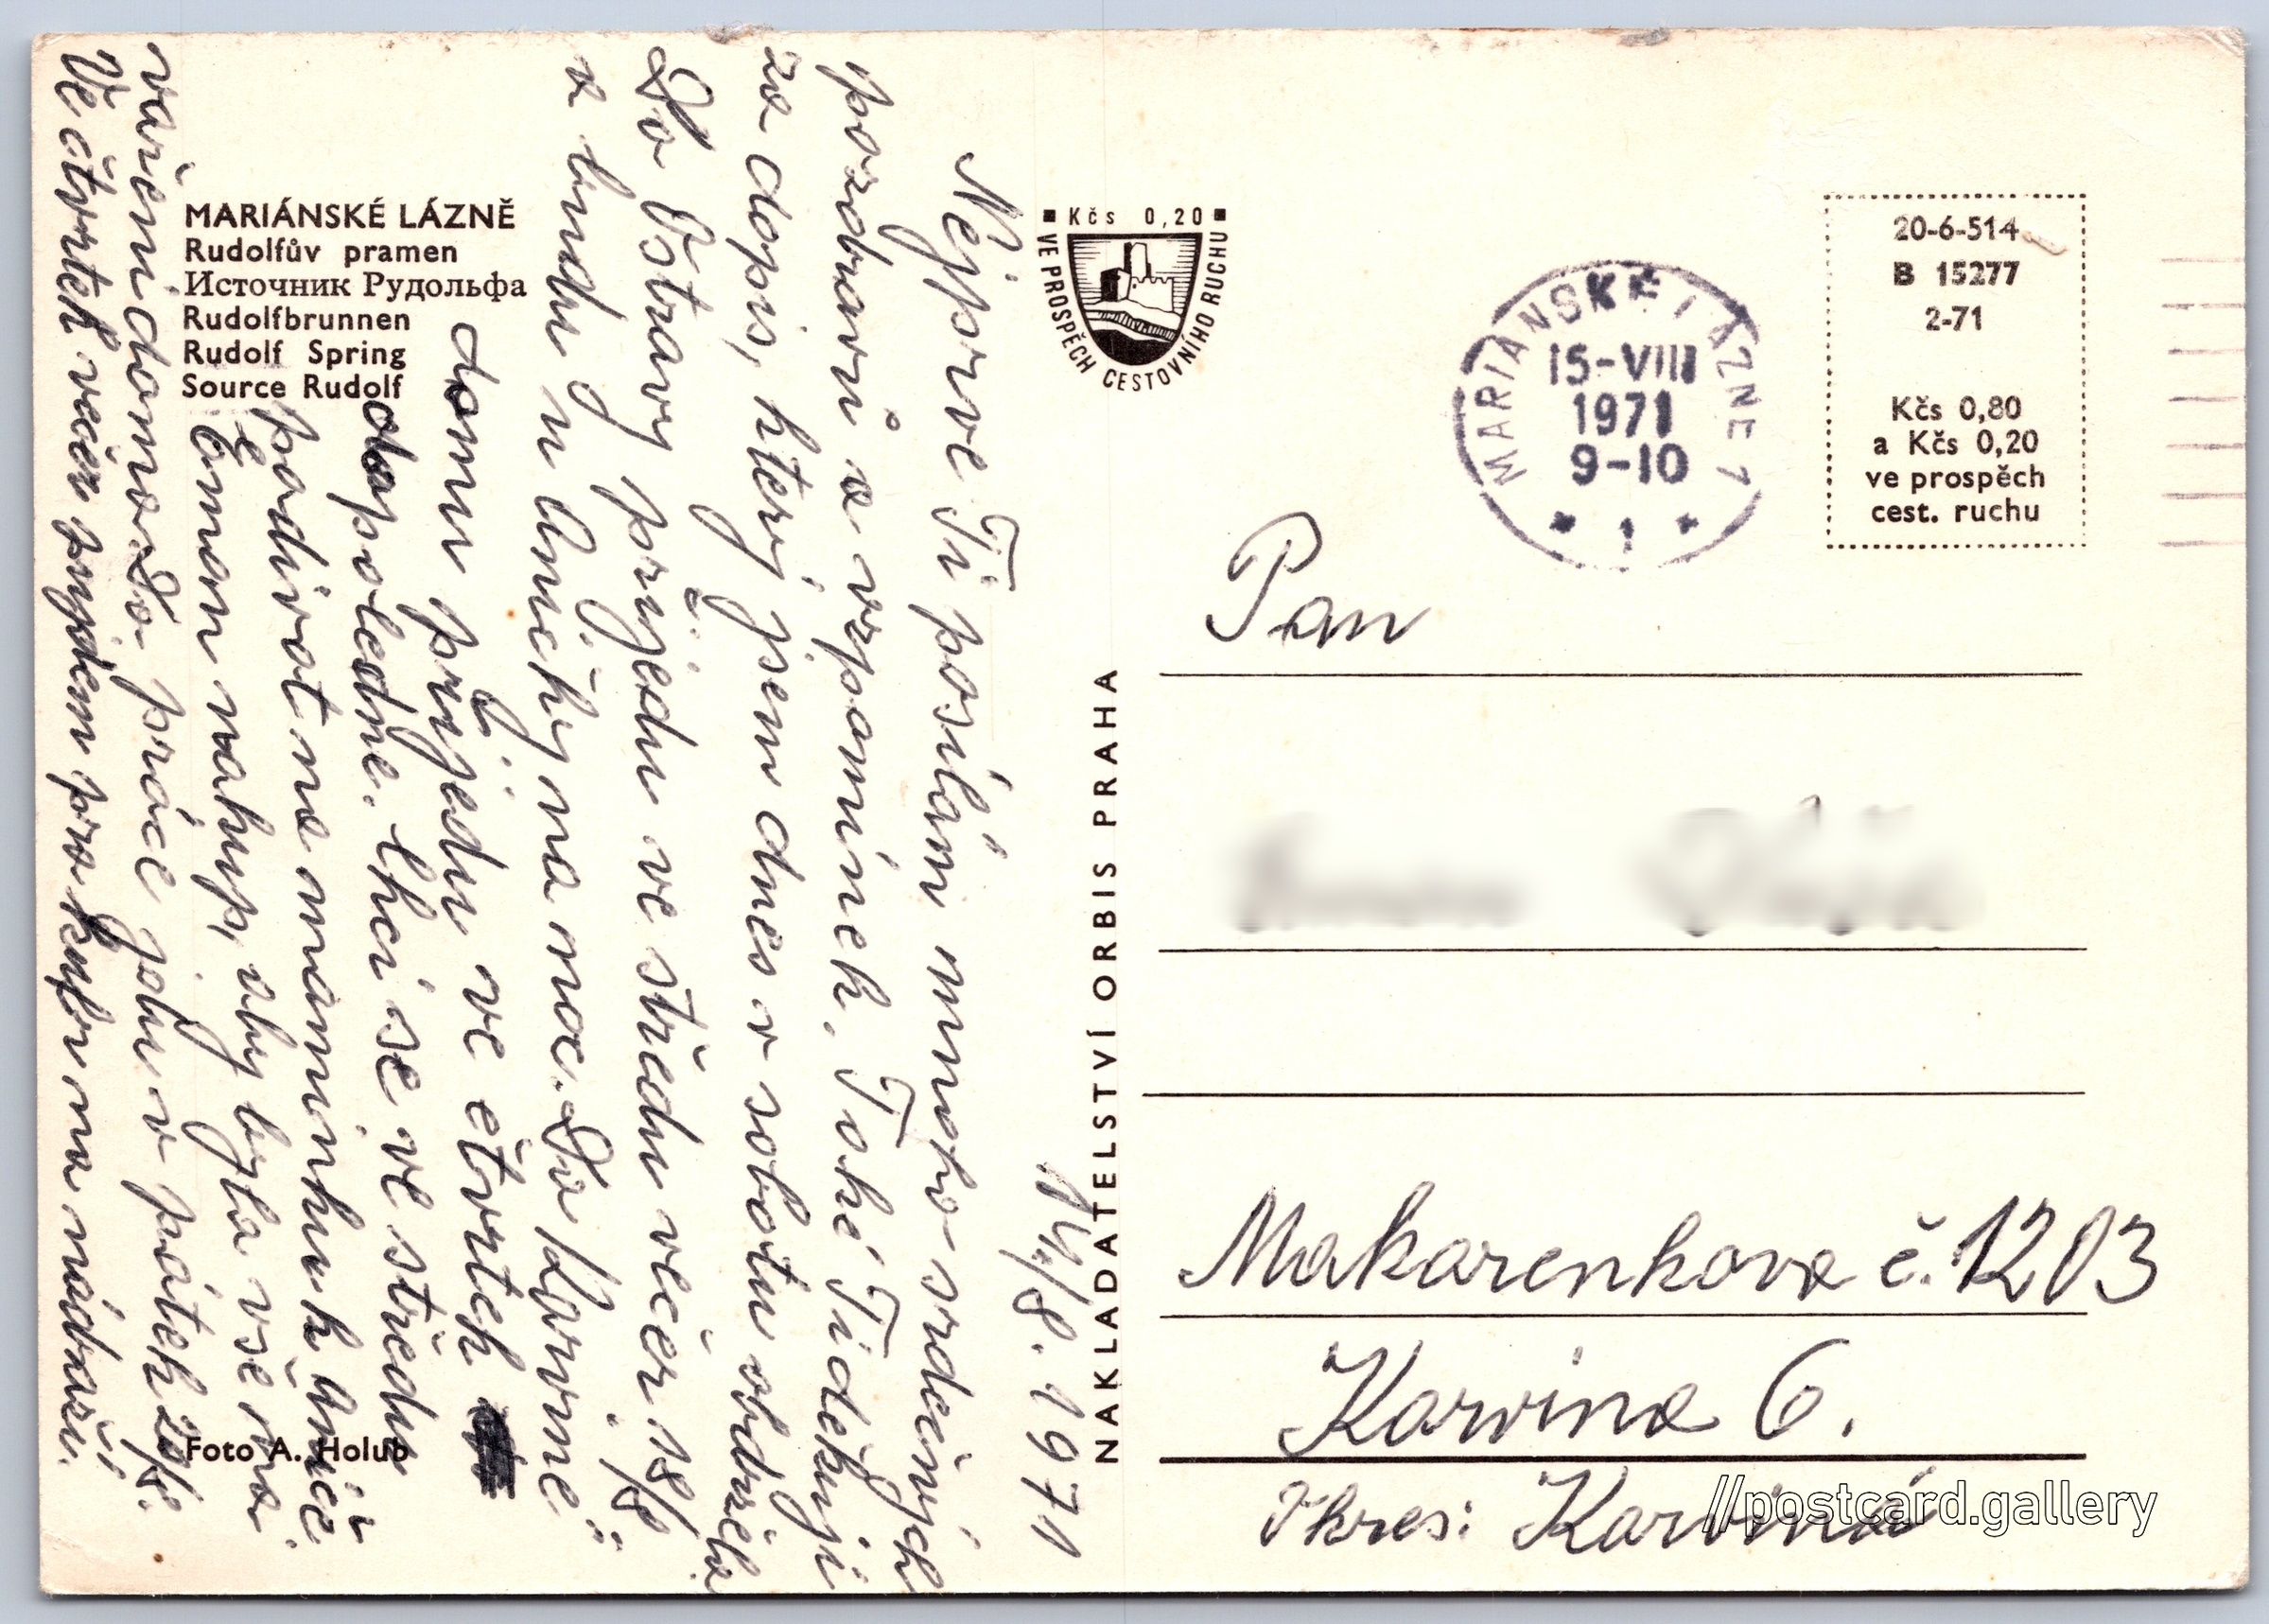 MARIÁNSKÉ LÁZNĚ
Rudolfův pramen
Источник Рудольфа
Rudolfbrunnen
Rudolf Spring
Source Rudolf
Foto A. Holub
14/8. 1971
Nejprve Ti posílám mnoho srdečných
pozdravů a vzpomínek. Také Ti děkuji
za dopis, který jsem dnes v sobotu obdržela
Do Ostravy přijedu ve středu večer 18/8
a budu u Aničky na noc. Do Karviné
domů přijedu ve čtvrtek
dopoledne. Chci se ve středu
podívat na maminku k Aničce
Eman nakup, aby byla vše na
vaření doma. Do práce jdu v pátek 20/8.
Ve čtvrtek večer půjdem pro kufr na nádraží.
Kčs 0,20
VE PROSPĚCH CESTOVNÍHO RUCHU
NAKLADATELSTVÍ ORBIS PRAHA
MARIÁNSKÉ LÁZNĚ 1
15-VIII
1971
9-10
1
20-6-514
B 15277
2-71
Kčs 0,80
a Kčs 0,20
ve prospěch
cest. ruchu
Pan
Makarenkova č. 1203
Karvina 6.
Okres: Karviná
//postcard.gallery